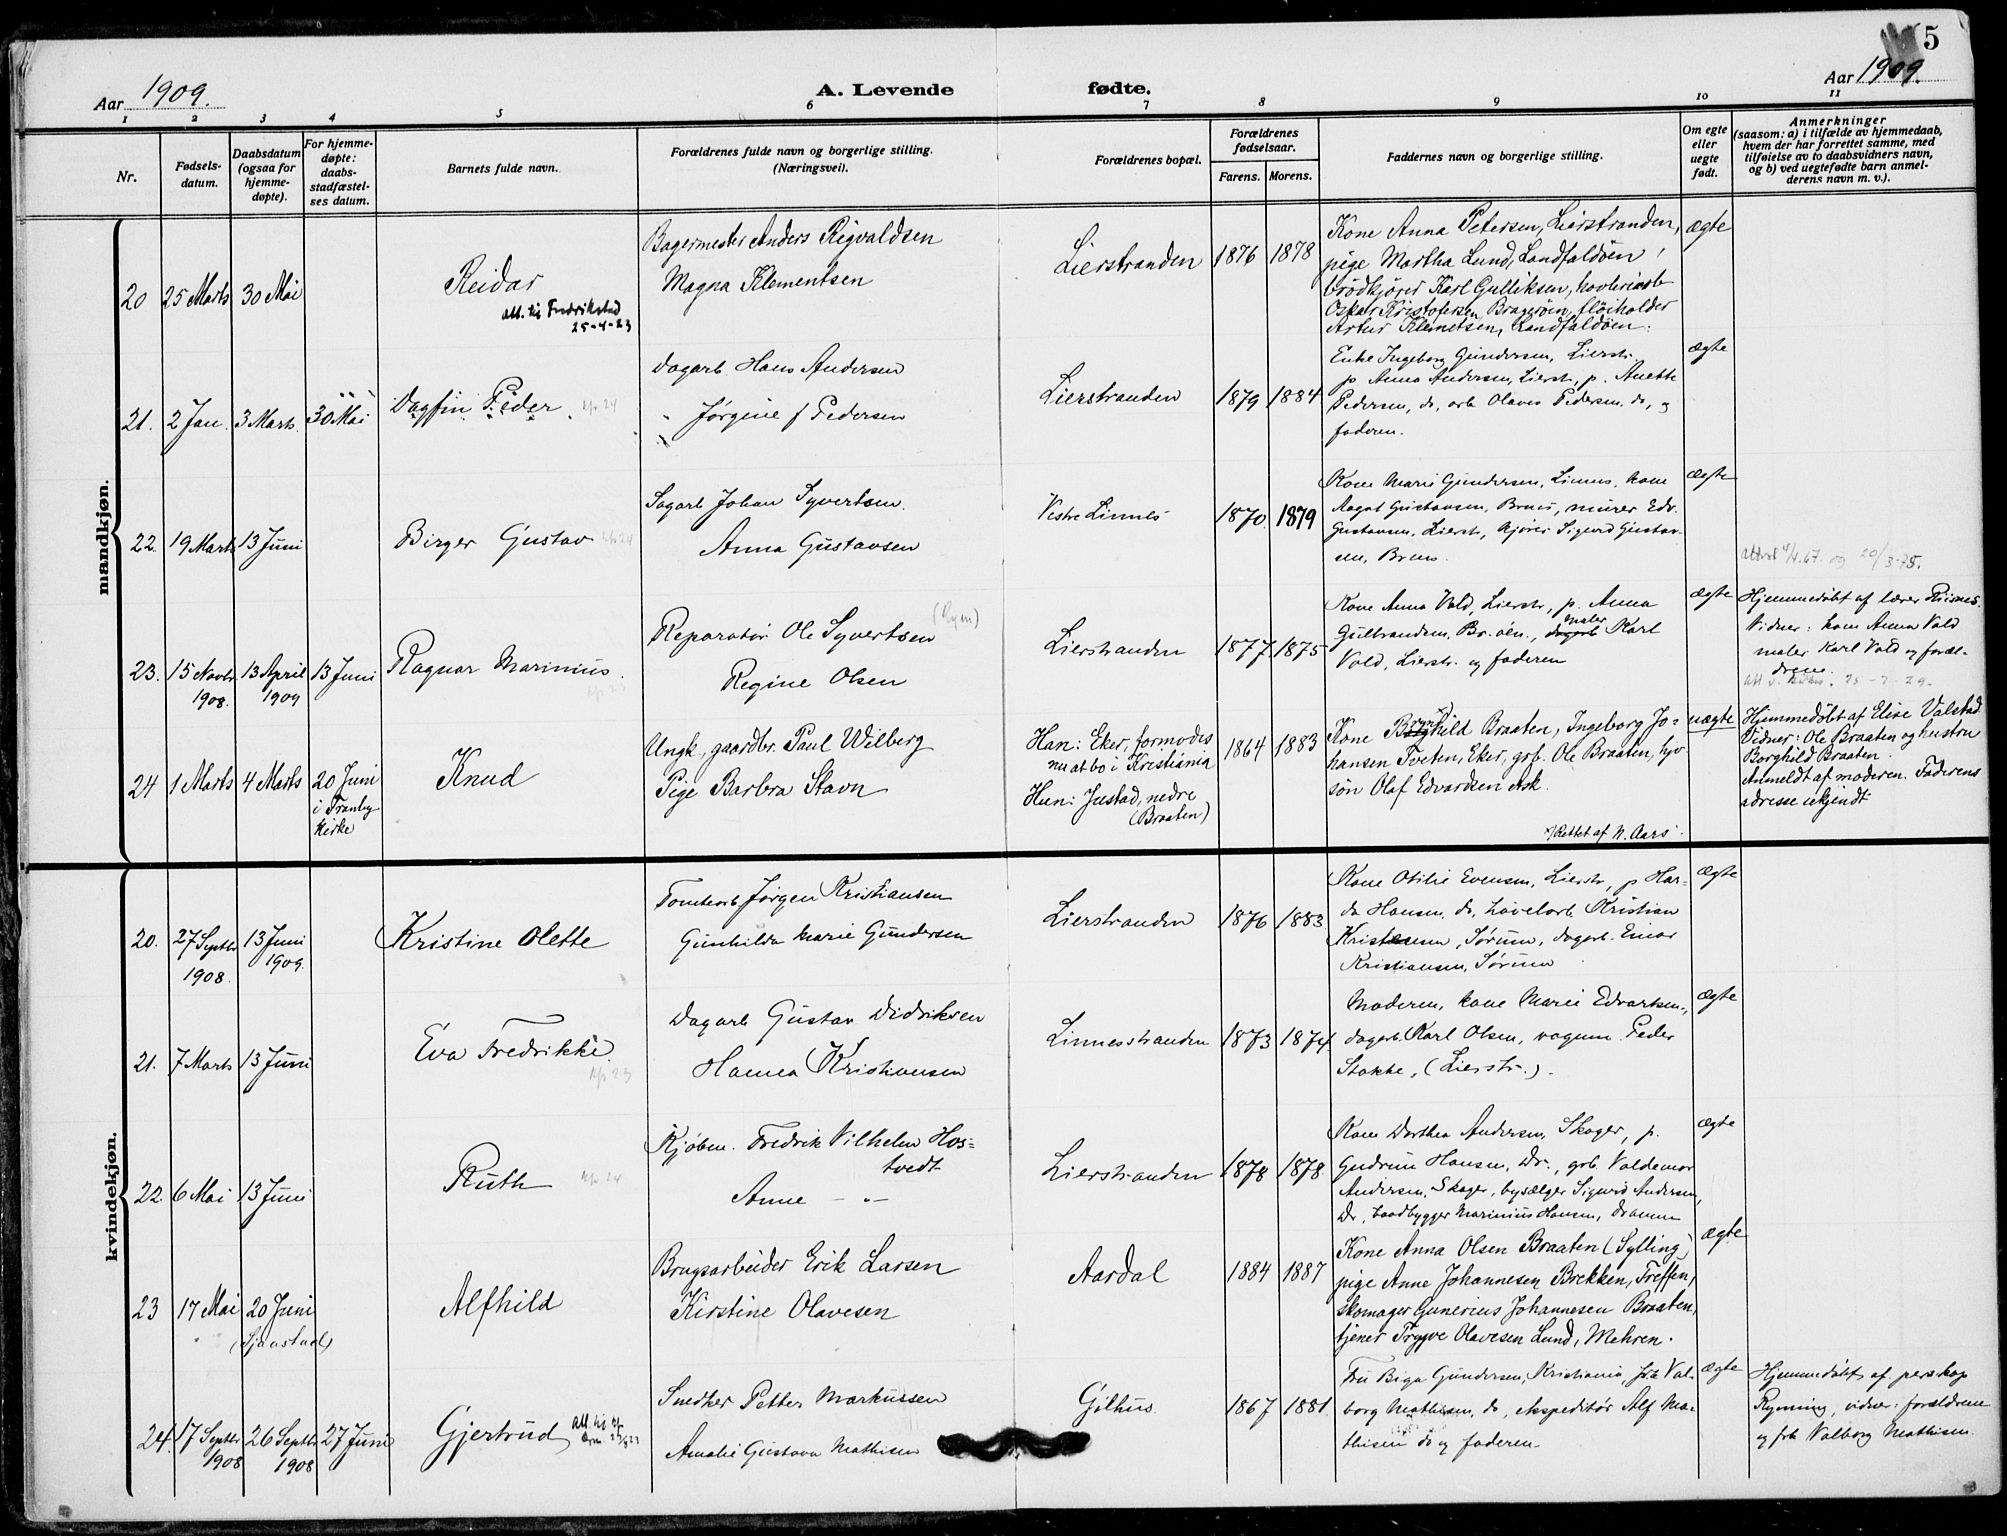 5
Aar 1909.
A. Levende fødte.
Aar 1909.
1 2 3 4 5 6 7 8 9 10 11
Nr.
Fødsels-
datum.
Daabsdatum
(ogsaa for
hjemme-
døpte).
For hjemme-
døpte:
daabs-
stadfæstel-
ses datum.
Barnets fulde navn.
Forældrenes fulde navn og borgerlige stilling.
(Næringsvei).
Forældrenes bopæl.
Forældrenes
fødselsaar.
Farens. Morens.
Faddernes navn og borgerlige stilling.
Om egte
eller
uegte
født.
Anmerkninger
(saasom: a) i tilfælde av hjemmedaab,
hvem der har forrettet samme, med
tilføielse av to daabsvidners navn,
og b) ved uegtefødte barn anmel-
derens navn m. v.).
mandkjøn.
20
25 Marts
30 Mai
Reidar
att. til Fredrikstad
25-4-23
Bagermester Anders Rigvaldsen
Magna Klementsen
Lierstranden
1876 1878
Kone Anna Petersen, Lierstranden,
pige Martha Lund, Landfaldöen,
brödkjörer Karl Gulliksen, hovleriarb
Oskar Kristofersen Bragerøen, fløiholder
Artur Klemetsen, Landfaldöen.
ægte
21.
2 Jan.
3 Marts.
30 Mai
Dagfin Peder
Dagarb. Hans Andersen
Jørgine f Pedersen
Lierstranden
1879 1884
Enke Ingeborg Gundersen, Lierstr.
p. Anna Andersen, Lierstr, p. Anette
Pedersen, do, arb. Olaves Pedersen do, og
faderen.
ægte
22.
19 Marts
13 Juni
Birger Gustav
Sagarb Johan Syvertsen.
Anna Gustavsen
Vestre Linnes
1870 1879
Kone Marie Gundersen, Linnes, kone
Aagot Gustavsen, Brus, murer Edv.
Gustavsen, Lierstr, kjører Sigurd Gustav-
sen, Brus.
ægte
4/4.67. og 20/3-75.
23.
15 Novbr
1908.
13 April
1909
13 Juni
Ragnar Marinius.
Reparatør Ole Syvertsen
(Rym)
Regine Olsen
Lierstranden
1877 1875
Kone Anna Vold, Lierstr, p. Anna
Gulbrandsen, Br.öen., dagarb maler Karl
Vold, Lierstr. og faderen
ægte
Hjemmedøbt af lærer Risnes.
Vidner: kone Anna Vold
maler Karl Vold og foræl-
drene.
24
1 Marts
4 Marts
20 Juni
i Tranby
Kirke
Knud
Ungk., gaardbr. Paul Wilberg
Pige Barbra Stavn
Han: Eker, formodes
nu at bo i Kristiania
Hun: Justad, nedre
(Braaten)
1864 1883
Kone Borghild Braaten, Ingeborg Jo-
hansen Tveten, Eker, grb. Ole Braaten, hjv
søn Olaf Edvardsen Ask.
x) Rettet af N. Aars.
uægte
Hjemmedöbt af Elise Valstad
Vidner: Ole Braaten og hustru
Borghild Braaten.
Anmeldt af moderen. Faderens
adresse ukjendt
kvindekjøn.
20.
27 Septbr
1908.
13 Juni
1909.
Kristine Olette
Tomtearb. Jørgen Kristiansen
Gunhilda Marie Gundersen
Lierstranden
1876 1883
Kone Otilie Evensen, Lierstr, p Har-
da Hansen, do, høvelarb. Kristian
Kristensen, Sørum, dagarb. Einar
Kristiansen, Sørum
ægte
21.
7 Marts
13 Juni
Eva Fredrikke.
Dagarb Gustav Didriksen
Hanna Kristiansen
Linnesstranden
1873 1874
Moderen, kone Marie Edvartsen.,
dagarb. Karl Olsen, vognm. Peder
Stokke, (Lierstr.).
ægte
22.
6 Mai
13 Juni
Ruth
Kjøbm. Fredrik Vilhelm Hos-
tvedt
Anne - " -
Lierstranden
1878 1878
Kone Dorthea Andersen, Skoger, p.
Gudrun Hansen, Dr., grb. Valdemar
Andersen, Skoger, bysælger Sigurd Andersen,
Dr, baadbygger Marinius Hansen, Drammen
ægte
23
17 Mai
20 Juni
(Sjaastad)
Alfhild
Brugsarbeider Erik Larsen
Kirstine Olavesen
Aardal
1884 1887
Kone Anna Olsen Braaten (Sylling)
pige Anne Johannesen Brekken, Treffen,
skomager Gunerius Johannesen Braaten,
tjener Trygve Olavesen Lund, Mehren.
ægte
24.
17 Septbr
1908
26 Septbr
1908
27 Juni
Gjertrud
Snedker Petter Markussen
Amalie Gustava Mathisen
Gilhus
1867 1881
Fru Biga Gundersen, Kristiania, frk Val-
borg Mathisen, do, ekspeditør Alf Ma-
thisen do og faderen.
ægte
Hjemmedøbt af perskap
Rynning, vidner: forældrene
og frk Valborg Mathisen.